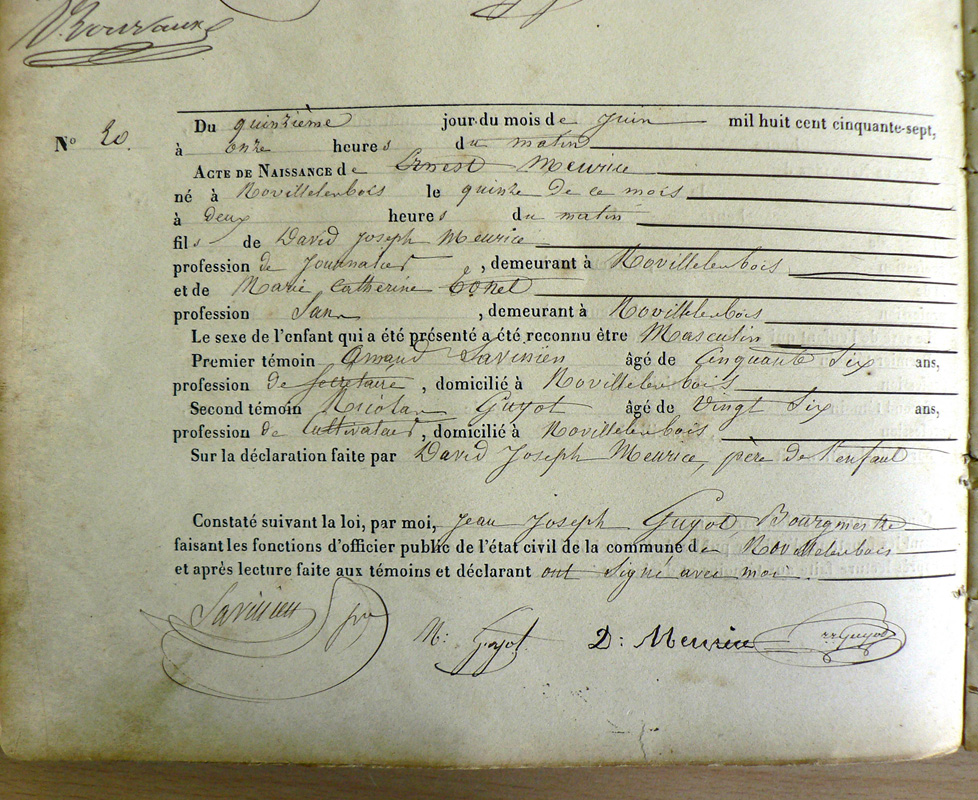 Nº 20.
Du quinzième jour du mois de juin mil huit cent cinquante-sept,
à onze heures du matin
ACTE DE NAISSANCE de Ernest Meurice
né à Novillelenbois le quinze de ce mois
à deux heures du matin
fils de David Joseph Meurice
profession de Journalier, demeurant à Novillelenbois
et de Marie Catherine
profession Sans, demeurant à Novillelenbois
Le sexe de l'enfant qui a été présenté a été reconnu être Masculin
Premier témoin Amand Savinien âgé de Cinquante Six ans,
profession de Secrétaire, domicilié à Novillelenbois
Second témoin Nicolas Guyot âgé de Vingt Six ans,
profession de Cultivateur, domicilié à Novillelenbois
Sur la déclaration faite par David Joseph Meurice, père de l'enfant
Constaté suivant la loi, par moi, Jean Joseph Guyot Bourgmestre
faisant les fonctions d'officier public de l'état civil de la commune de Novillelenbois
et après lecture faite aux témoins et déclarant ont Signé avec moi.
Savinien N: Guyot D: Meurice Guyot